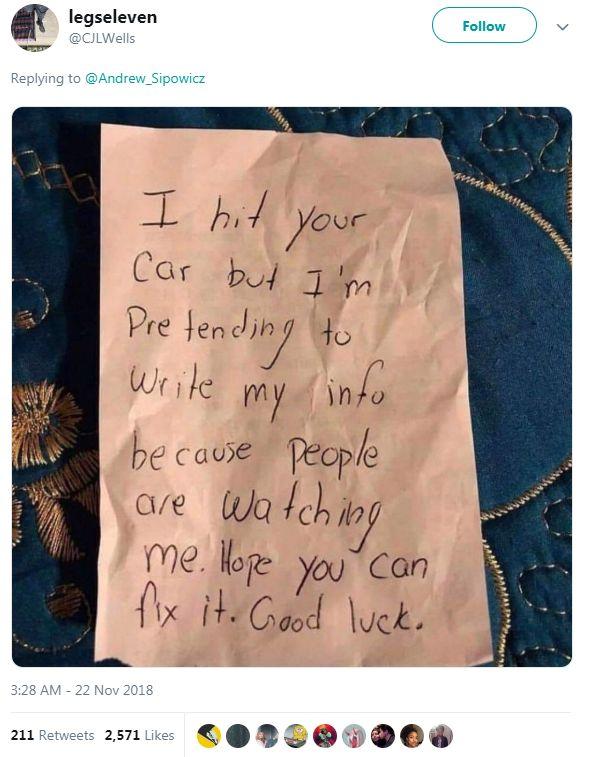 legseleven
@CJLWells
Follow
Replying to @Andrew_Sipowicz
I hit your
Car but I'm
Pretending to
Write my info
because people
are watching
me. Hope you can
fix it. Good luck.
3:28 AM - 22 Nov 2018
211 Retweets 2,571 Likes